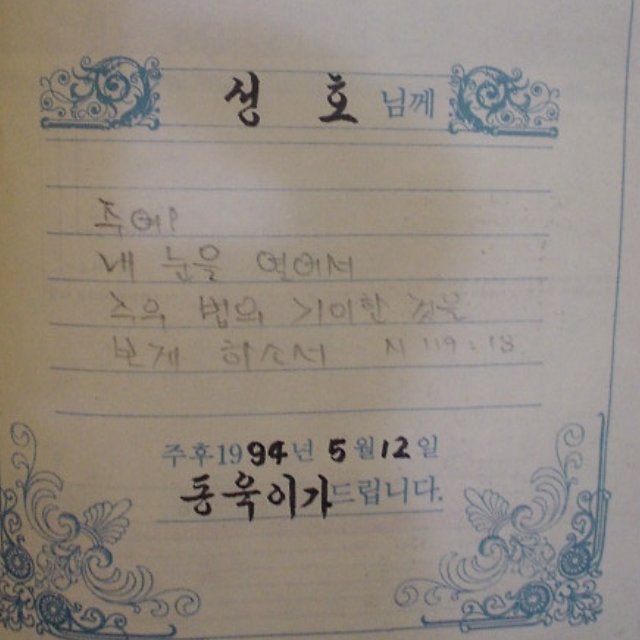 성 호 님께
주여!
내 눈을 열어서
주의 법의 기이한 것을
보게 하소서 시 119:18
주후1994년 5월12일
동욱이가드립니다.